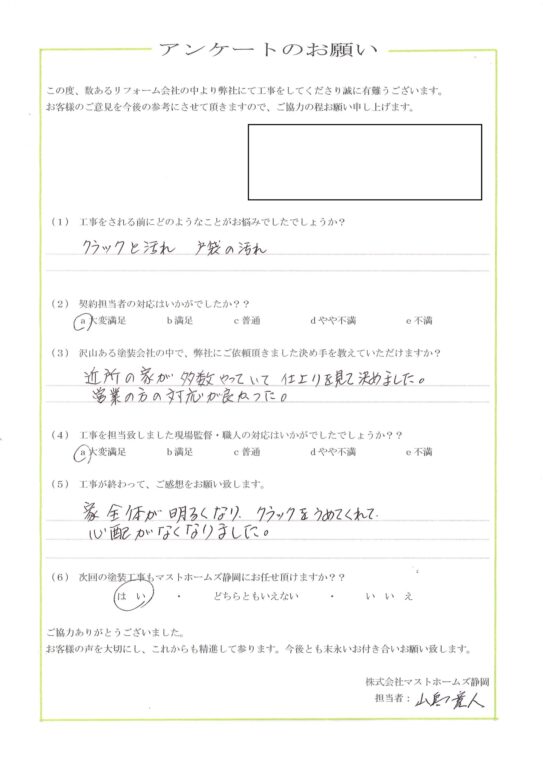 アンケートのお願い
この度、数あるリフォーム会社の中より弊社にて工事をしてくださり誠に有難うございます。
お客様のご意見を今後の参考にさせて頂きますので、ご協力の程お願い申し上げます。
（1） 工事をされる前にどのようなことがお悩みでしたでしょうか？
クラックと汚れ 戸袋の汚れ
（2） 契約担当者の対応はいかがでしたか？？
a 大変満足 b 満足 c 普通 d やや不満 e 不満
（3） 沢山ある塗装会社の中で、弊社にご依頼頂きました決め手を教えていただけますか？
近所の家が多数やっていて 仕上りを見て決めました。
営業の方の対応が良かった。
（4） 工事を担当致しました現場監督・職人の対応はいかがでしたでしょうか？？
a 大変満足 b 満足 c 普通 d やや不満 e 不満
（5） 工事が終わって、ご感想をお願い致します。
家全体が明るくなり、クラックをうめてくれて
心配がなくなりました。
（6） 次回の塗装工事もマストホームズ静岡にお任せ頂けますか？？
はい ・ どちらともいえない ・ いいえ
ご協力ありがとうございました。
お客様の声を大切にし、これからも精進して参ります。今後とも末永いお付き合いお願い致します。
株式会社マストホームズ静岡
担当者：